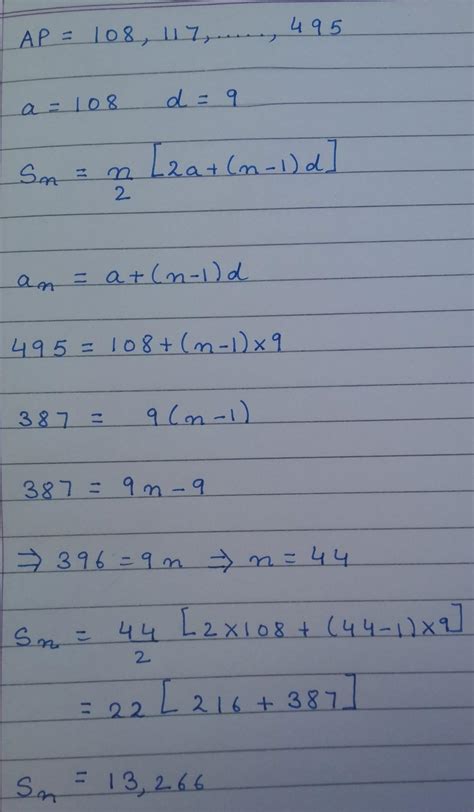 AP = 108, 117, ....., 495
a = 108 d = 9
Sn = n/2 [2a+(n-1)d]
an = a+(n-1)d
495 = 108+(n-1)×9
387 = 9(n-1)
387 = 9n-9
⇒ 396 = 9n ⇒ n = 44
Sn = 44/2 [2×108 + (44-1)×9]
= 22 [216 + 387]
Sn = 13,266